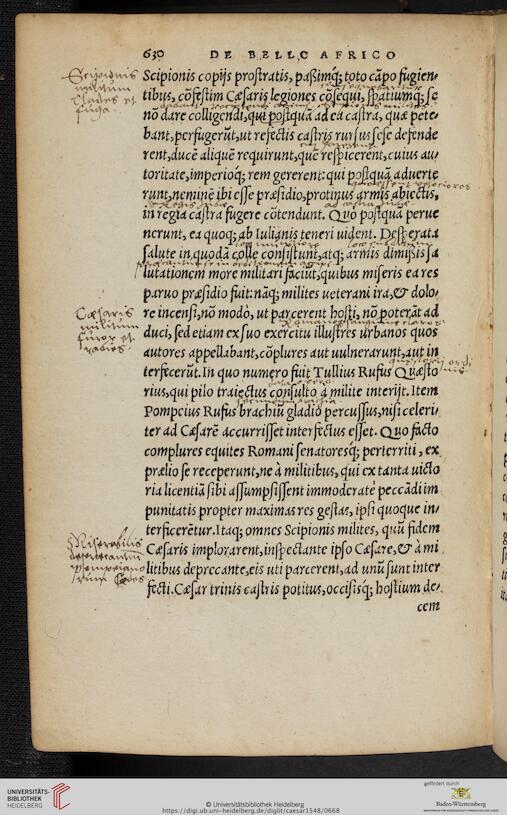 630 DE BELLO AFRICO
Scipionis
militum
Clades et
fuga.
Scipionis copijs prostratis, paßimq́; toto cāpo fugien-
tibus, cōfestim Cæsaris legiones cōsequi, spatiumq́; se
nō dare colligendi, qui postquā ad ea castra, quæ pete-
bant, perfugerūt, ut refectis castris rursus sese defende
rent, ducē aliquē requirunt, quē respicerent, cuius au-
toritate, imperioq́; rem gererent: qui postquā aduerte
runt, neminē ibi esse præsidio, protinus armis abiectis,
in regia castra fugere cōtendunt. Quo postquā perue
nerunt, ea quoq; ab Iulianis teneri uident. Desperata
salute in quodā colle consistunt, atq; armis dimißis sa
lutationem more militari faciūt, quibus miseris ea res
paruo præsidio fuit: nāq; milites ueterani ira, & dolo-
re incensi, nō modò, ut parcerent hosti, nō poterāt ad
duci, sed etiam ex suo exercitu illustres urbanos quos
autores appellabant, cōplures aut uulnerarunt, aut in
terficerūt. In quo numero fuit Tullius Rufus Quæsto
rius, qui pilo traiectus consulto à milite interijt. Item
Pompeius Rufus brachiū gladio percussus, nisi celeri-
ter ad Cæsarē accurrisset interfectus esset. Quo facto
complures equites Romani senatoresq́; perterriti, ex
prælio se receperunt, ne à militibus, qui ex tanta uicto
ria licentiā sibi assumpsissent immoderatè peccādi im
punitatis propter maximas res gestas, ipsi quoque in-
terficerētur. Itaq; omnes Scipionis milites, quū fidem
Cæsaris implorarent, inspectante ipso Cæsare, & à mi
litibus deprecante, eis uti parcerent, ad unū sunt inter
fecti. Cæsar trinis castris potitus, occisisq́; hostium de-
cem
Cæsaris
militum
furor et
rabies.
Miserabilis
Pompeiano
rum Cædes
UNIVERSITÄTS-
BIBLIOTHEK
HEIDELBERG
© Universitätsbibliothek Heidelberg
https://digi.ub.uni-heidelberg.de/diglit/caesar1548/0668
gefördert durch
Baden-Württemberg